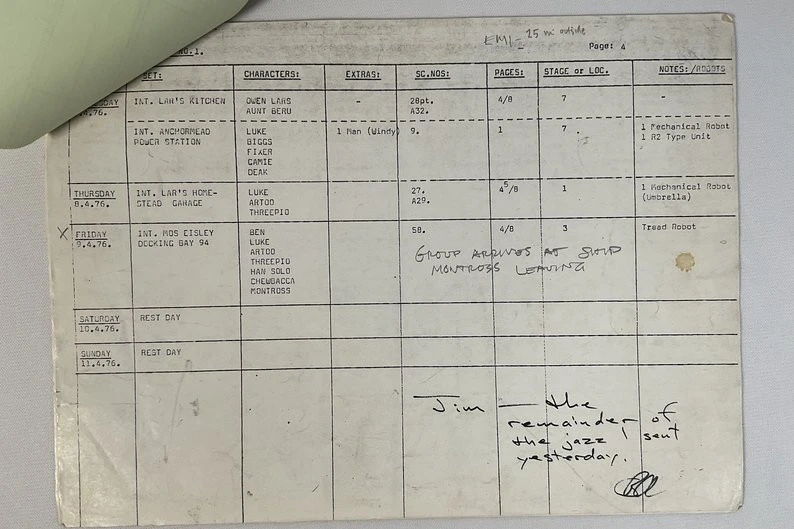 EMI - 25 mi outside
NO.1. Page: 4
SET: CHARACTERS: EXTRAS: SC.NOS: PAGES: STAGE or LOC. NOTES:/ROBOTS
INT. LAR'S KITCHEN OWEN LARS - 28pt. 4/8 7 -
.4.76. AUNT BERU A32.
INT. ANCHORHEAD LUKE 1 Man (Windy) 9. 1 7 . 1 Mechanical Robot
POWER STATION BIGGS 1 R2 Type Unit
FIXER
CAMIE
DEAK
THURSDAY INT. LAR'S HOME- LUKE 27. 4 5/8 1 1 Mechanical Robot
8.4.76. STEAD GARAGE ARTOO A29. (Umbrella)
THREEPIO
X FRIDAY INT. MOS EISLEY BEN 58. 4/8 3 Tread Robot
9.4.76. DOCKING BAY 94 LUKE
ARTOO GROUP ARRIVES AT SHIP
THREEPIO MONTROSS LEAVING
HAN SOLO
CHEWBACCA
MONTROSS
SATURDAY REST DAY
10.4.76.
SUNDAY REST DAY
11.4.76.
Jim - the
remainder of
the jazz I sent
yesterday.